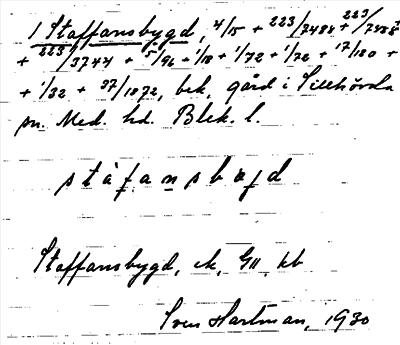 1 Staffansbygd, 4/15 + 223/7488 + 223/7488
+ 223/3744 + 5/96 + 1/18 + 1/72 + 1/72 + 17/180 +
+ 1/32 + 37/1872, bek. gård i Sillhövda
sn. Med. hd. Blek. l.
stàfansbøgd
Staffansbygd, ek, GII, kb
Sven Hartman, 1930